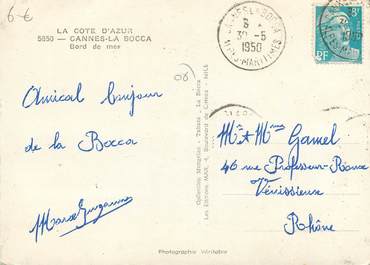 6 €
LA COTE D'AZUR
5850 — CANNES-LA BOCCA
Bord de mer
CANNES LA BOCCA
8
30-5
1950
ALPES-MARITIMES
RF
(06)
Amical bonjour
de la Bocca
Collection Mongelias - Tabacs - La Bocca
Les Editions MAR, 4, Boulevard de Cimiez - NICE
Mr et Mme Gamel
46 rue Professeur-Roux
Vénissieux
Rhône
Photographie Véritable